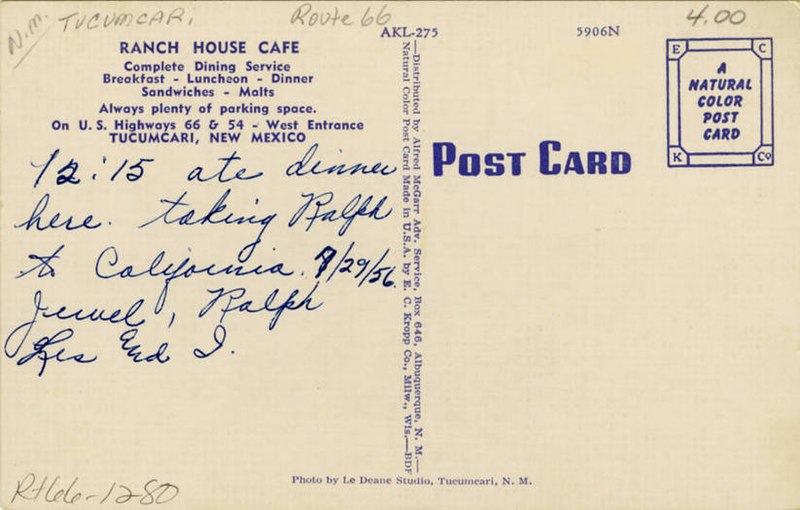 N.M. TUCUMCARI
Route 66
4.00
AKL-275
5906N
RANCH HOUSE CAFE
Complete Dining Service
Breakfast - Luncheon - Dinner
Sandwiches - Malts
Always plenty of parking space.
On U. S. Highways 66 & 54 - West Entrance
TUCUMCARI, NEW MEXICO
12:15 ate dinner
here. taking Ralph
to California. 9/29/56.
Jewel, Ralph
Les and I.
—Distributed by Alfred McGarr Adv. Service, Box 646, Albuquerque, N. M.—
Natural Color Post Card Made in U.S.A. by E. C. Kropp Co., Milw., Wis.—BDF
POST CARD
E C
A
NATURAL
COLOR
POST
CARD
K Co
Photo by Le Deane Studio, Tucumcari, N. M.
Rt66-1280